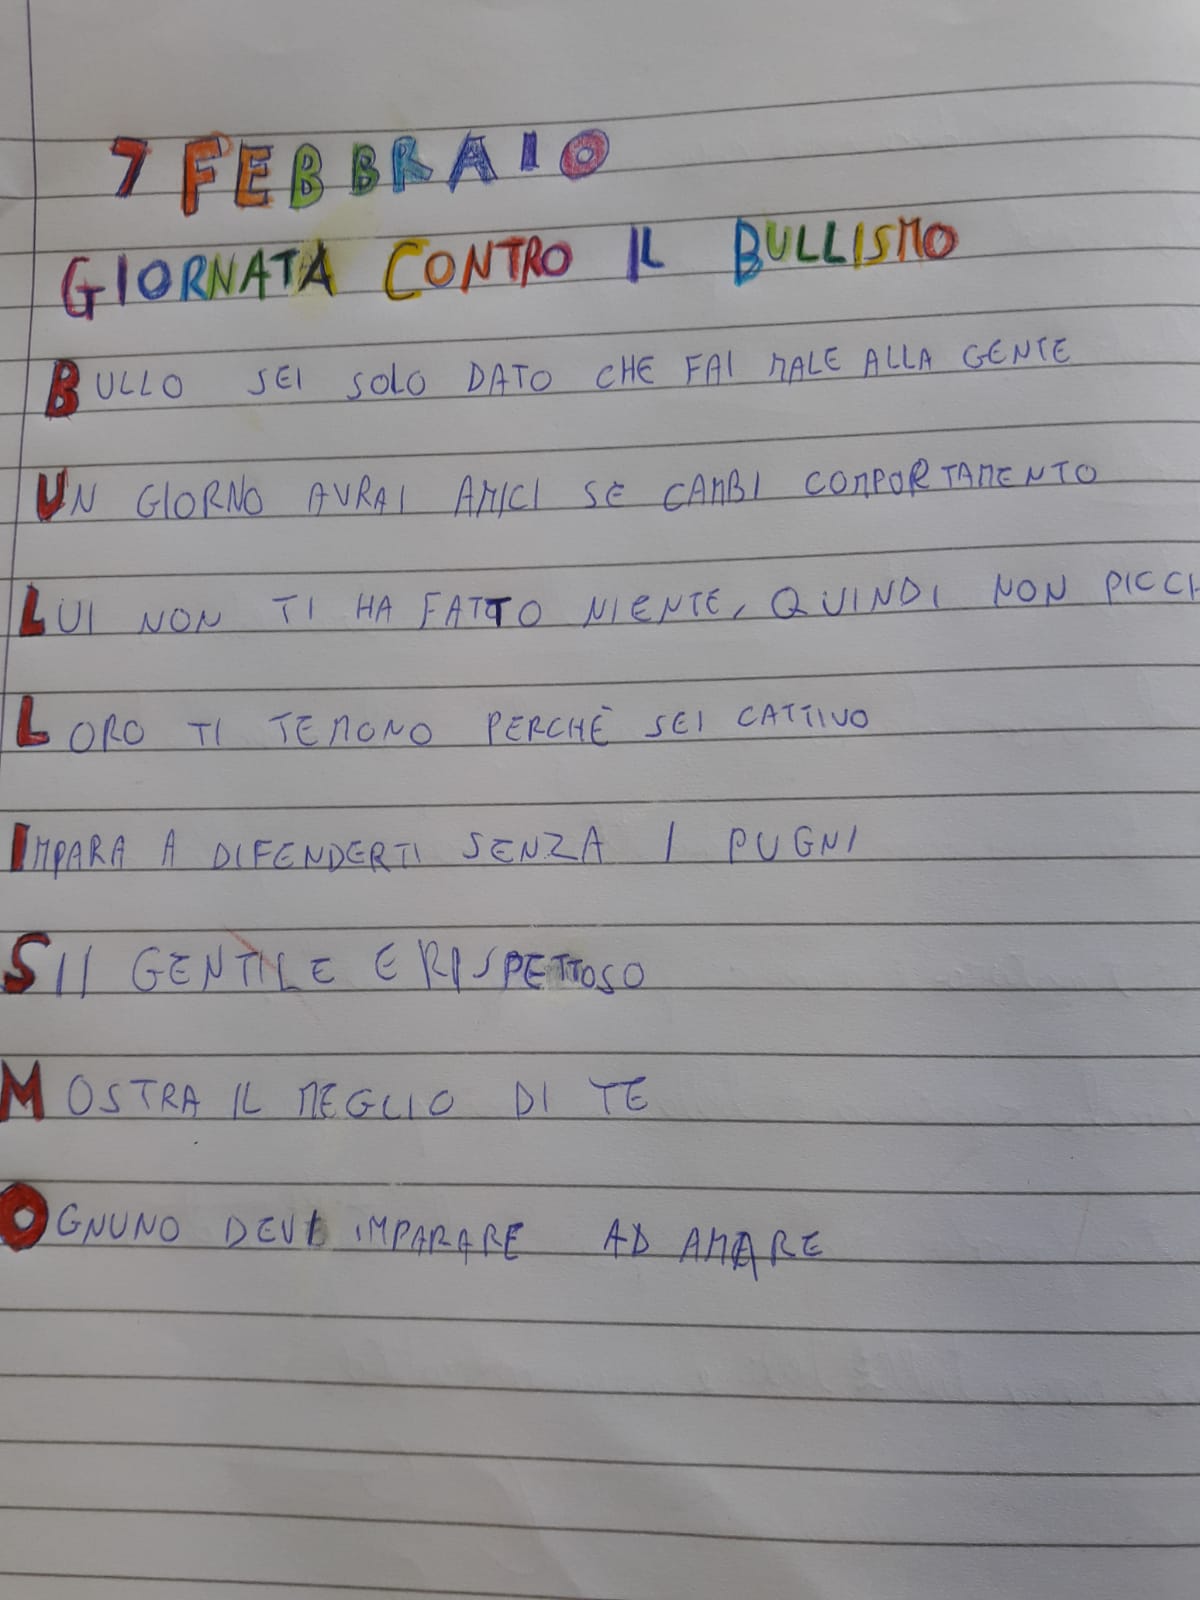 7 FEBBRAIO
GIORNATA CONTRO IL BULLISMO
BULLO SEI SOLO DATO CHE FAI MALE ALLA GENTE
UN GIORNO AVRAI AMICI SE CAMBI COMPORTAMENTO
LUI NON TI HA FATTO NIENTE, QUINDI NON PICCH
LORO TI TEMONO PERCHÈ SEI CATTIVO
IMPARA A DIFENDERTI SENZA I PUGNI
SII GENTILE E RISPETTOSO
MOSTRA IL MEGLIO DI TE
OGNUNO DEVE IMPARARE AD AMARE